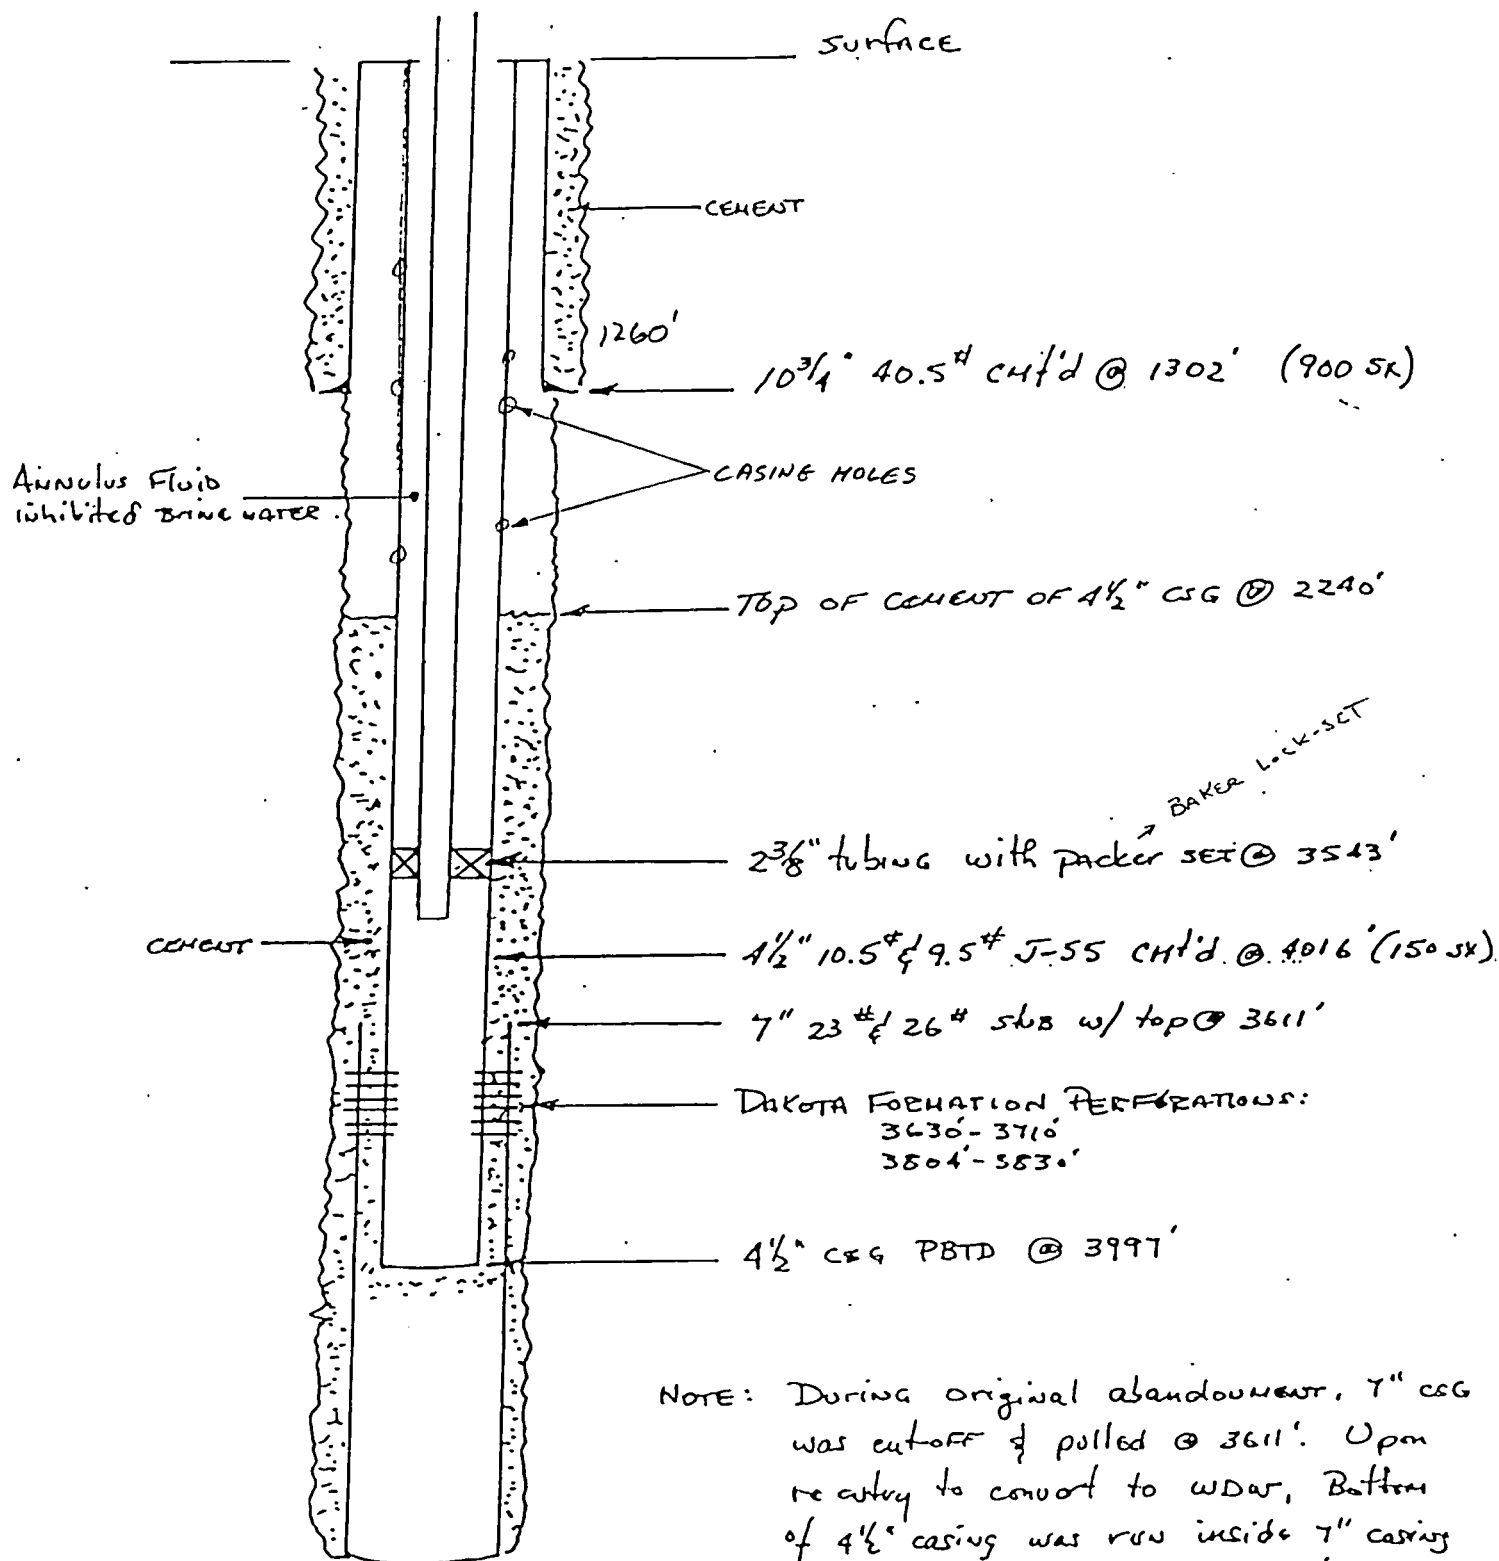 SURFACE
CEMENT
1260'
10 3/4" 40.5# CMT'd @ 1302' (900 SX)
CASING HOLES
ANNULUS FLUID
INHIBITED BRINE WATER.
TOP OF CEMENT OF 4 1/2" CSG @ 2240'
BAKER LOCK-SET
2 3/8" tubing with packer SET @ 3543'
CEMENT
4 1/2" 10.5# & 9.5# J-55 CMT'd. @ 4016' (150 SX)
7" 23# & 26# STUB w/ top @ 3611'
DAKOTA FORMATION PERFORATIONS:
3630'-3710'
3804'-3830'
4 1/2" CSG PBTD @ 3997'
NOTE: During original abandonment, 7" CSG
was cut-off & pulled @ 3611'. Upon
re entry to convert to WDW, Bottom
of 4 1/2" casing was run inside 7" casing